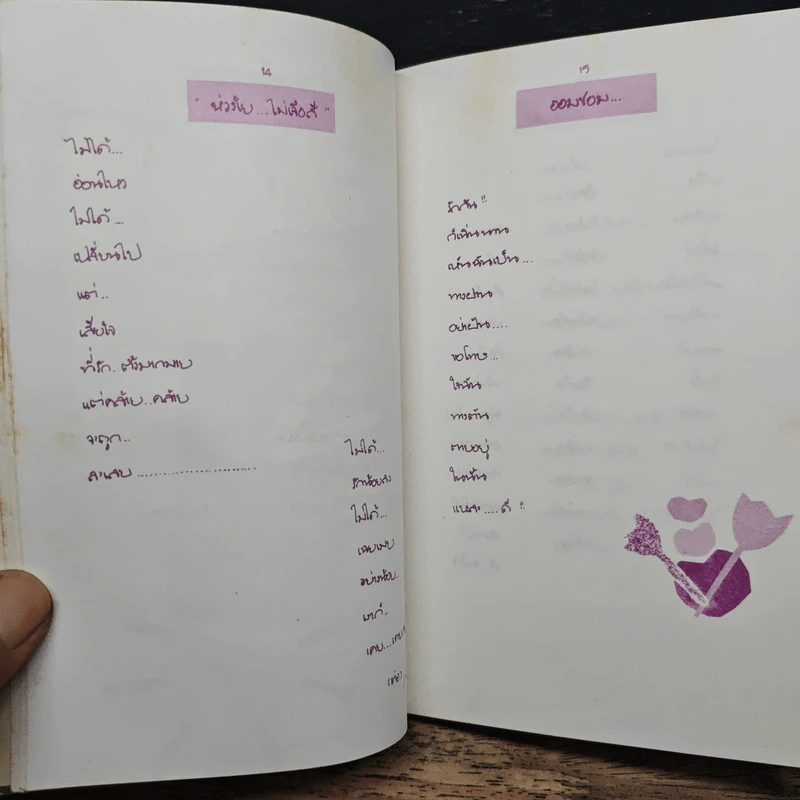 14
" ห่วงใย...ไม่เจือสี "
ไม่ได้...
อ่อนไหว
ไม่ได้...
เปลี่ยนไป
แต่..
เสียใจ
ที่รัก..
แต่คล้าย..คล้าย
จะถูก..
ละเลย........................
ไม่ได้...
รักน้อยลง
ไม่ได้...
เฉยเมย
อย่างน้อย..
เราก็..
เคย...
(ต่อ)
15
ออมชอม...
รักกัน!!
ก็เนิ่นนาน
เห็นฉันเป็น...
ทางผ่าน
อย่าฝัน....
ขอโทษ...
ใจฉัน
ทางตัน
ตายอยู่
ในนั้น
แหละ.....ดี !!